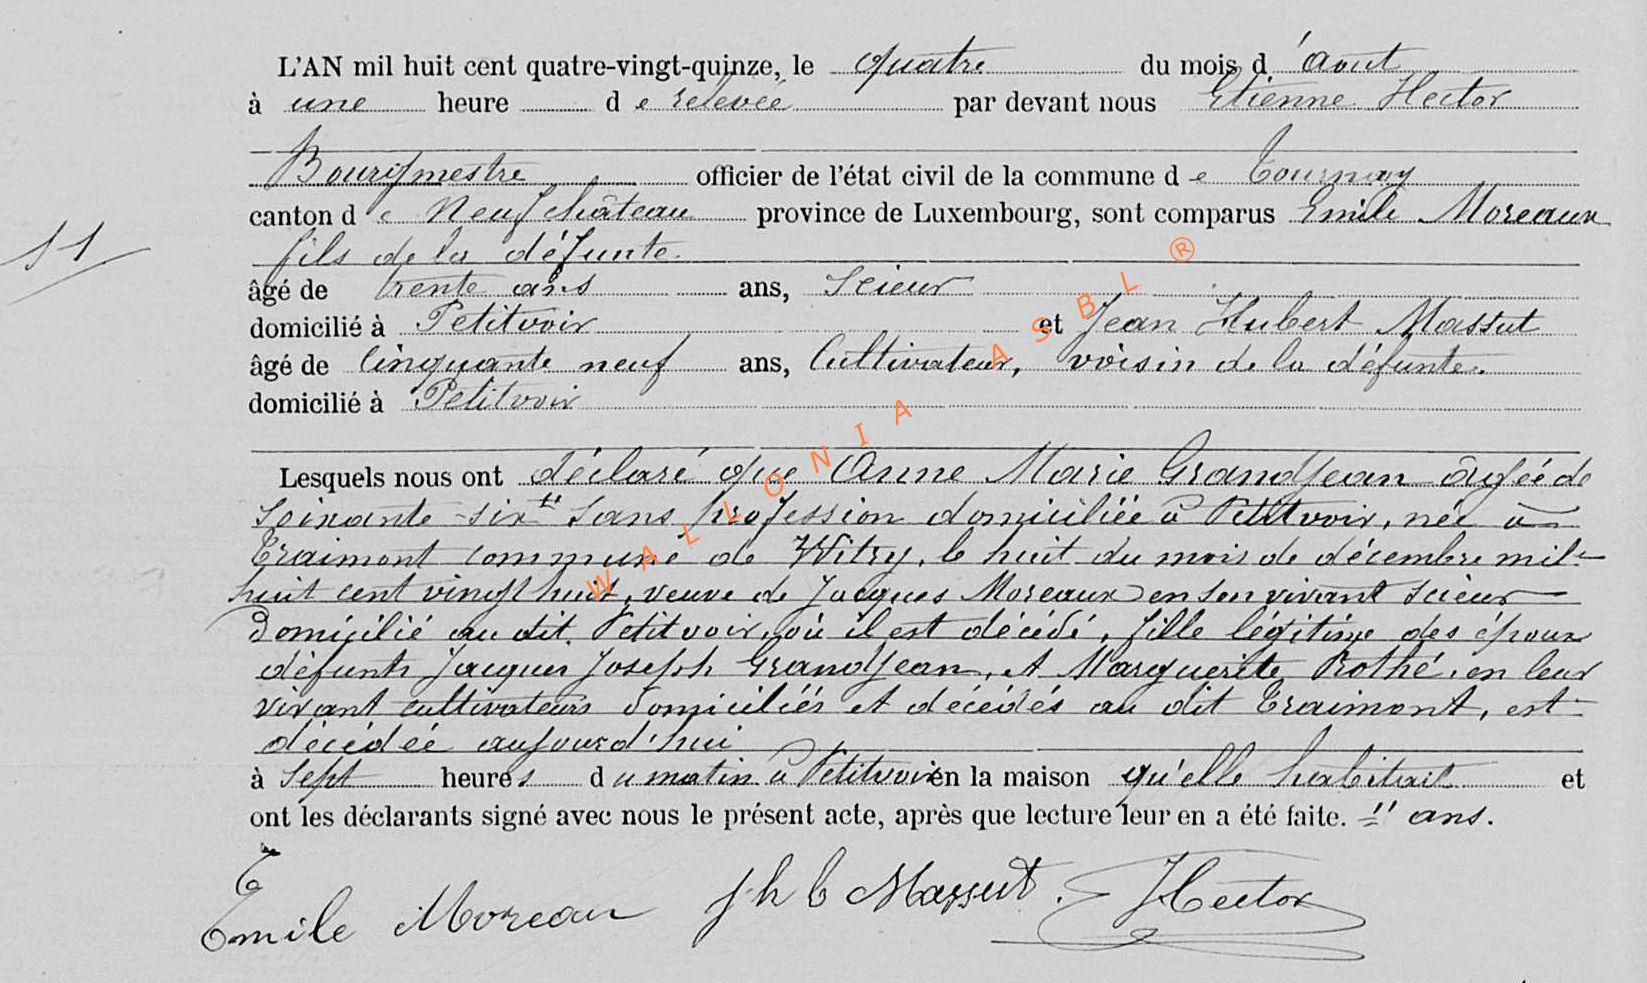 L'AN mil huit cent quatre-vingt-quinze, le quatre du mois d'Aout
à une heure de relevée par devant nous Etienne Hector
Bourgmestre officier de l'état civil de la commune de Tournay
canton de Neufchâteau province de Luxembourg, sont comparus Emile Moreaux
11
fils de la défunte.
âgé de trente ans ans, Scieur
domicilié à Petitvoir et Jean Hubert Massut
âgé de Cinquante neuf ans, Cultivateur, voisin de la défunte.
domicilié à Petitvoir
Lesquels nous ont déclaré que Anne Marie Grandjean âgée de
Soixante-six " Sans profession domiciliée à Petitvoir, née à
Traimont commune de Witry, le huit du mois de décembre mil
huit cent vingt huit, veuve de Jacques Moreaux en son vivant scieur
Domicilié au dit Petitvoir, où il est décédé, fille légitime des époux
défunts Jacques Joseph Grandjean, et Marguerite Rothé, en leur
vivant cultivateurs domiciliés et décédés au dit Traimont, est
décédée aujourd'hui
à Sept heures du matin à Petitvoir en la maison qu'elle habitait et
ont les déclarants signé avec nous le présent acte, après que lecture leur en a été faite. = " ans.
E
Emile Moreau J h b Massut. Hector
WALLONIA ASBL ®